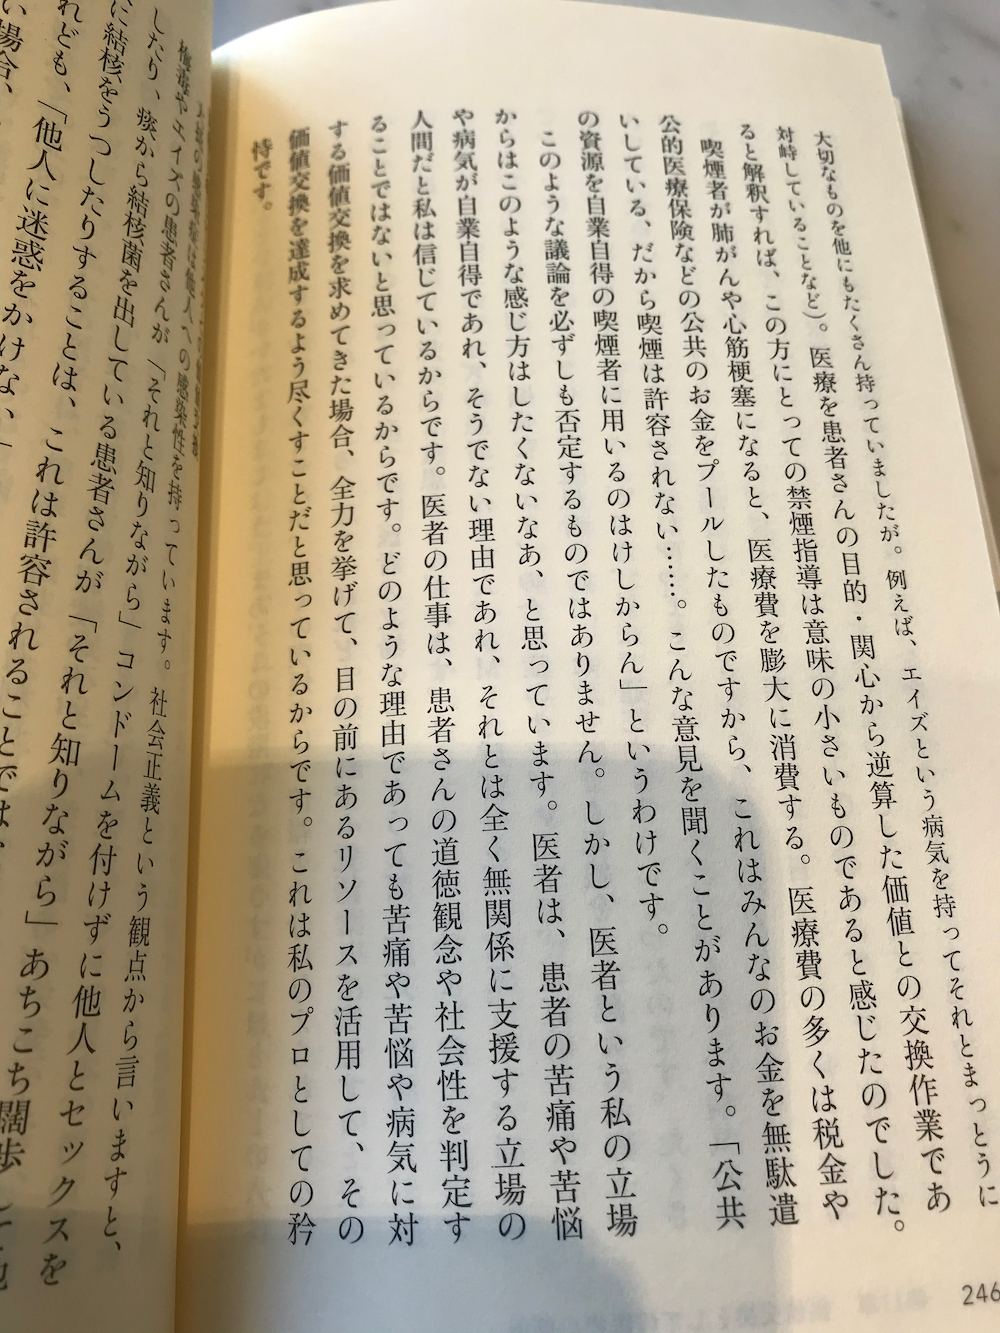 大切なものを他にもたくさん持っていましたが。例えば、エイズという病気を持ってそれとまっとうに
対峙していることなど）。医療を患者さんの目的・関心から逆算した価値との交換作業であ
ると解釈すれば、この方にとっての禁煙指導は意味の小さいものであると感じたのでした。
喫煙者が肺がんや心筋梗塞になると、医療費を膨大に消費する。医療費の多くは税金や
公的医療保険などの公共のお金をプールしたものですから、これはみんなのお金を無駄遣
いしている、だから喫煙は許容されない……。こんな意見を聞くことがあります。「公共
の資源を自業自得の喫煙者に用いるのはけしからん」というわけです。
このような議論を必ずしも否定するものではありません。しかし、医者という私の立場
からはこのような感じ方はしたくないなあ、と思っています。医者は、患者の苦痛や苦悩
や病気が自業自得であれ、そうでない理由であれ、それとは全く無関係に支援する立場の
人間だと私は信じているからです。医者の仕事は、患者さんの道徳観念や社会性を判定す
ることではないと思っているからです。どのような理由であっても苦痛や苦悩や病気に対
する価値交換を求めてきた場合、全力を挙げて、目の前にあるリソースを活用して、その
価値交換を達成するよう尽くすことだと思っているからです。これは私のプロとしての矜
恃です。
246
の感染性を持っています。社会正義という観点から言いますと、
梅毒やエイズの患者さんが「それと知りながら」コンドームを付けずに他人とセックスを
したり、痰から結核菌を出している患者さんが「それと知りながら」あちこち闊歩
に結核をうつしたりすることは、これは許容されることでは
れども、「他人に迷惑をかけない」
い場合、